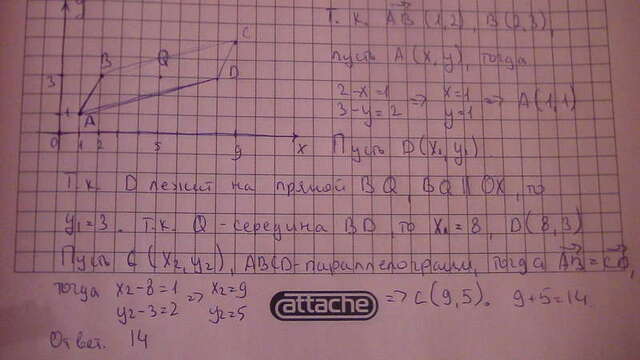 y
C
B
Q
D
3
1
A
0
1
2
5
9
x
Т. к. AB (1,2), B(2,3),
пусть A(x,y), тогда
2-x=1
3-y=2
=>
x=1
y=1
=> A(1,1)
Пусть D(x₁, y₁).
Т.к. D лежит на прямой BQ, BQ || OX, то
y₁=3. Т.к. Q-середина BD, то x₁=8, D(8,3)
Пусть C(x₂, y₂), ABCD-параллелограмм, тогда AB=CD,
тогда x₂-8=1
y₂-3=2
=>
x₂=9
y₂=5
attache
=> C(9,5). 9+5=14
Ответ. 14